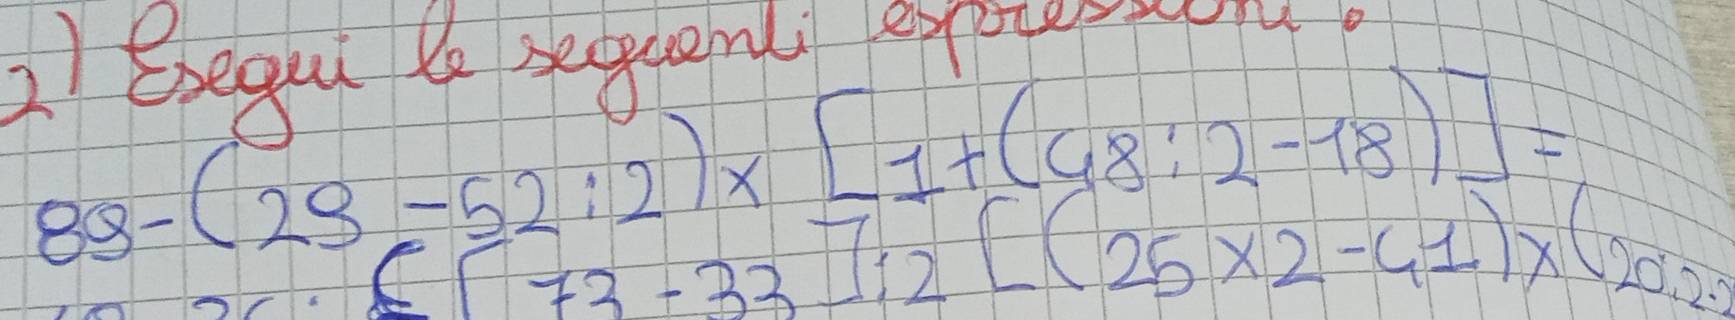 2) Esegui le seguenti espressioni.
89-(29-52:2)x[1+(48:2-18)]=
{[73-33]:2[(25x2-41)x(20:2-